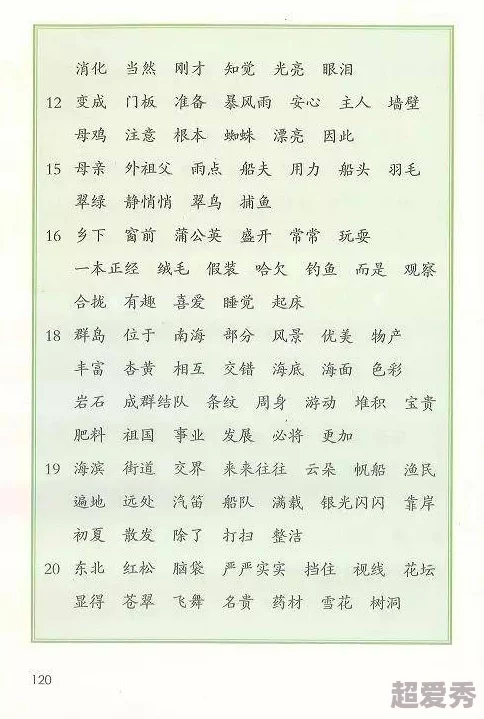 消化 当然 刚才 知觉 光亮 眼泪
12 变成 门板 准备 暴风雨 安心 主人 墙壁
母鸡 注意 根本 蜘蛛 漂亮 因此
15 母亲 外祖父 雨点 船夫 用力 船头 羽毛
翠绿 静悄悄 翠鸟 捕鱼
16 乡下 窗前 蒲公英 盛开 常常 玩耍
一本正经 绒毛 假装 哈欠 钓鱼 而是 观察
合拢 有趣 喜爱 睡觉 起床
18 群岛 位于 南海 部分 风景 优美 物产
丰富 杏黄 相互 交错 海底 海面 色彩
岩石 成群结队 条纹 周身 游动 堆积 宝贵
肥料 祖国 事业 发展 必将 更加
19 海滨 街道 交界 来来往往 云朵 帆船 渔民
遍地 远处 汽笛 船队 满载 银光闪闪 靠岸
初夏 散发 除了 打扫 整洁
20 东北 红松 脑袋 严严实实 挡住 视线 花坛
显得 苍翠 飞舞 名贵 药材 雪花 树洞
120
超爱秀